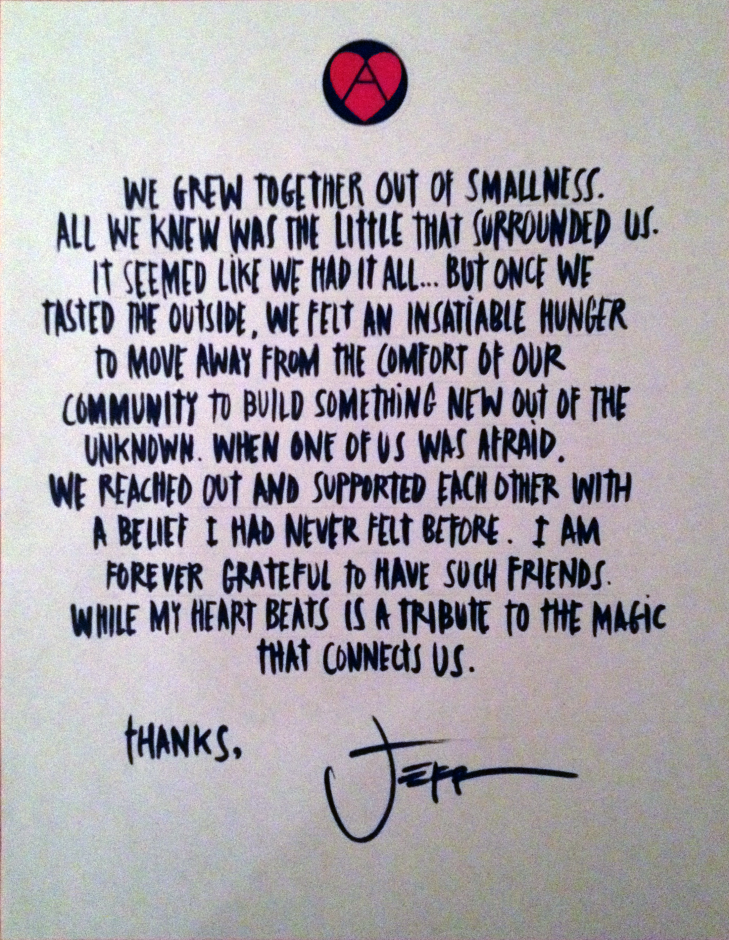 A
WE GREW TOGETHER OUT OF SMALLNESS.
ALL WE KNEW WAS THE LITTLE THAT SURROUNDED US.
IT SEEMED LIKE WE HAD IT ALL... BUT ONCE WE
TASTED THE OUTSIDE, WE FELT AN INSATIABLE HUNGER
TO MOVE AWAY FROM THE COMFORT OF OUR
COMMUNITY TO BUILD SOMETHING NEW OUT OF THE
UNKNOWN. WHEN ONE OF US WAS AFRAID.
WE REACHED OUT AND SUPPORTED EACH OTHER WITH
A BELIEF I HAD NEVER FELT BEFORE. I AM
FOREVER GRATEFUL TO HAVE SUCH FRIENDS.
WHILE MY HEART BEATS IS A TRIBUTE TO THE MAGIC
THAT CONNECTS US.
THANKS,
JEFF